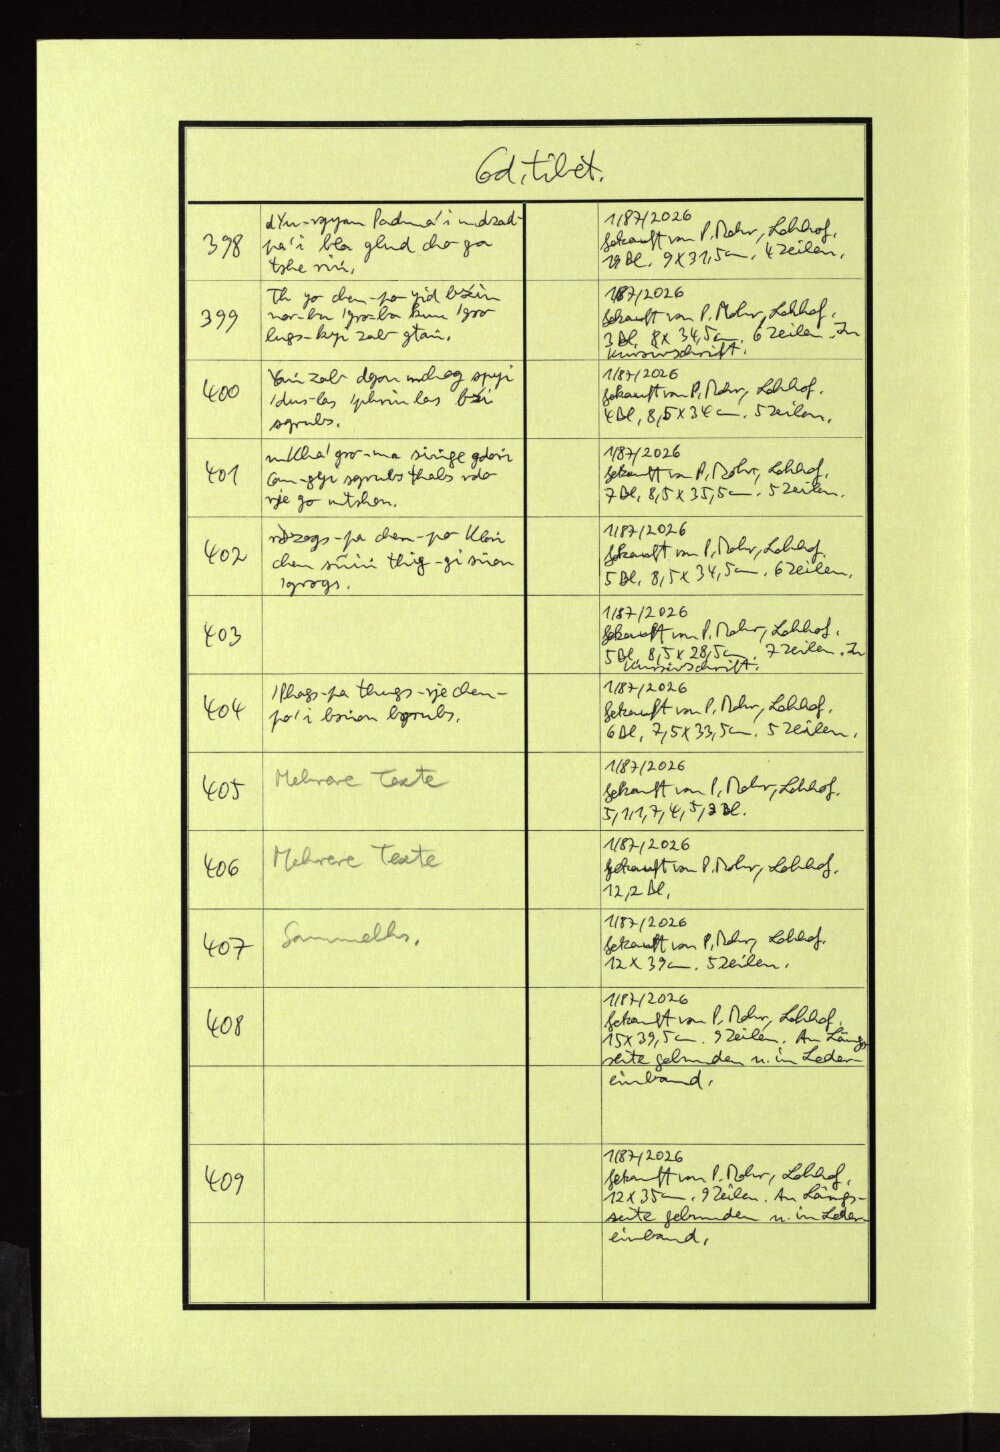 Cod. tibet.
398
dYu-rgyan Padma'i mdzad-
pa'i bla glud cho ga
tshe
1/87/2026
Gekauft von P. Mohr, Lohhof.
Bl. 9 x 31,5 cm. 4 Zeilen.
399
yo chen-po yid bźin
nor-bu 'gro-ba kun 'gro
lugs-kyi zab gtań.
1/87/2026
Gekauft von P. Mohr, Lohhof.
3 Bl. 8 x 34,5 cm. 6 Zeilen. In
Kursivschrift.
400
Yań zab dgon mchog spyi
'dus-las 'phrin las bźi
sgrubs.
1/87/2026
Gekauft von P. Mohr, Lohhof.
4 Bl. 8,5 x 34 cm. 5 Zeilen.
401
mKha' gro-ma sińge gdoń
can-gyi sgrubs thabs rdo
rje go mtshon.
1/87/2026
Gekauft von P. Mohr, Lohhof.
7 Bl. 8,5 x 35,5 cm. 5 Zeilen.
402
rdzogs-pa chen-po Kloń
chen sńiń thig-gi sńon
'grogs.
1/87/2026
Gekauft von P. Mohr, Lohhof.
5 Bl. 8,5 x 34,5 cm. 6 Zeilen.
403
1/87/2026
Gekauft von P. Mohr, Lohhof.
5 Bl. 8,5 x 28,5 cm. 7 Zeilen. In
Kursivschrift.
404
'Phags-pa thugs-rje chen-
po'i bsńon bgrubs.
1/87/2026
Gekauft von P. Mohr, Lohhof.
6 Bl. 7,5 x 33,5 cm. 5 Zeilen.
405
Mehrere Texte
1/87/2026
Gekauft von P. Mohr, Lohhof.
5,1,1,7,4,5, Bl.
406
Mehrere Texte
1/87/2026
Gekauft von P. Mohr, Lohhof.
12,2 Bl.
407
Sammelhs.
1/87/2026
Gekauft von P. Mohr, Lohhof.
12 x 39 cm. 5 Zeilen.
408
1/87/2026
Gekauft von P. Mohr, Lohhof.
15 x 39,5 cm. 9 Zeilen. An Längs-
seite gebunden u. in Leder-
einband.
409
1/87/2026
Gekauft von P. Mohr, Lohhof.
12 x 35 cm. 9 Zeilen. An Längs-
seite gebunden u. in Leder-
einband.